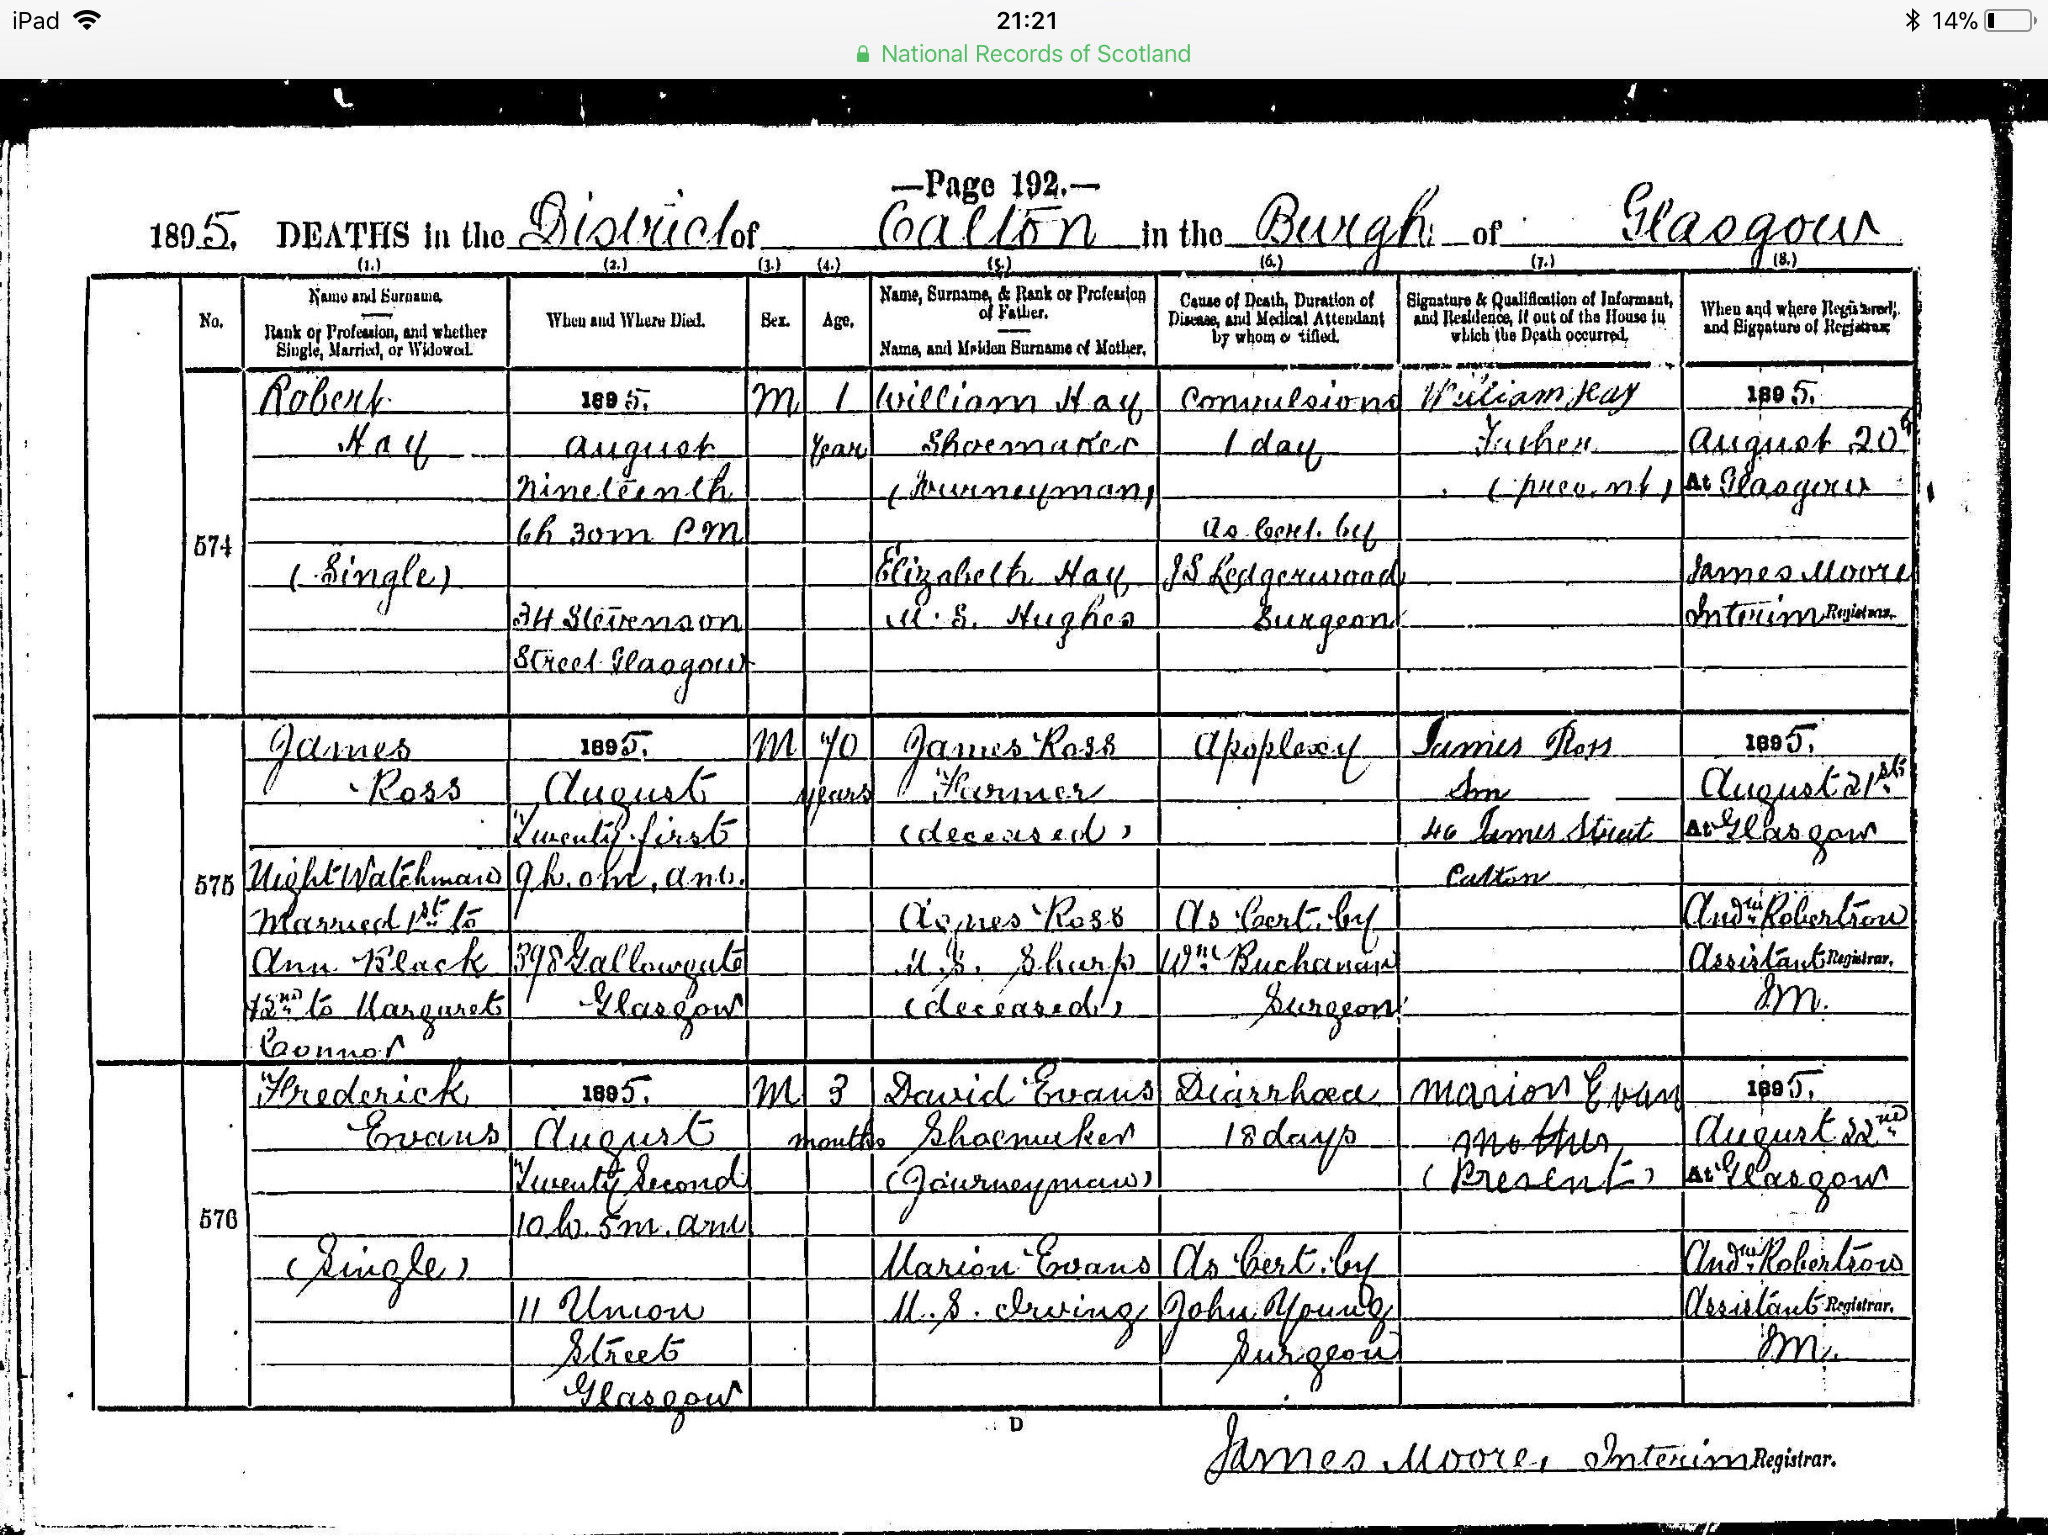 iPad
21:21
14%
National Records of Scotland
—Page 192.—
1895. DEATHS in the District of Calton in the Burgh of Glasgow
(1.) (2.) (3.) (4.) (5.) (6.) (7.) (8.)
No.
Name and Surname.
Rank or Profession, and whether
Single, Married, or Widowed.
When and Where Died.
Sex.
Age.
Name, Surname, & Rank or Profession
of Father.
Name, and Maiden Surname of Mother.
Cause of Death, Duration of
Disease, and Medical Attendant
by whom
Signature & Qualification of Informant,
and Residence, if out of the House in
which the Death occurred.
When and where Registered,
and Signature of Registrar.
574
Robert
Hay
(Single)
1895.
August
Nineteenth
6h 30m PM
34 Stevenson
Street Glasgow
M
1
Year
William Hay
Shoemaker
(Journeyman)
Elizabeth Hay
M.S. Hughes
Convulsions
1 day
As Cert. by
JS Ledgerwood
Surgeon
William Hay
Father
(present)
1895.
August 20th
At Glasgow
James Moore
Interim Registrar.
575
James
Ross
Night Watchman
Married 1st to
Ann Black
+2nd to Margaret
Connor
1895.
August
Twenty first
9h. 0m. am.
398 Gallowgate
Glasgow
M
70
years
James Ross
Farmer
(deceased)
Agnes Ross
M.S. Sharp
(deceased)
Apoplexy
As Cert. by
Wm Buchanan
Surgeon
James Ross
Son
46 James Street
Calton
1895.
August 21st
At Glasgow
Andw Robertson
Assistant Registrar.
JM.
576
Frederick
Evans
(Single)
1895.
August
Twenty Second
10h. 5m. am
11 Union
Street
Glasgow
M
3
months
David Evans
Shoemaker
(Journeyman)
Marion Evans
M.S. Irving
Diarrhœa
18 days
As Cert. by
John Young
Surgeon
Marion Evan
Mother
(Present)
1895.
August 22nd
At Glasgow
Andw Robertson
Assistant Registrar.
JM.
D
James Moore, Interim Registrar.